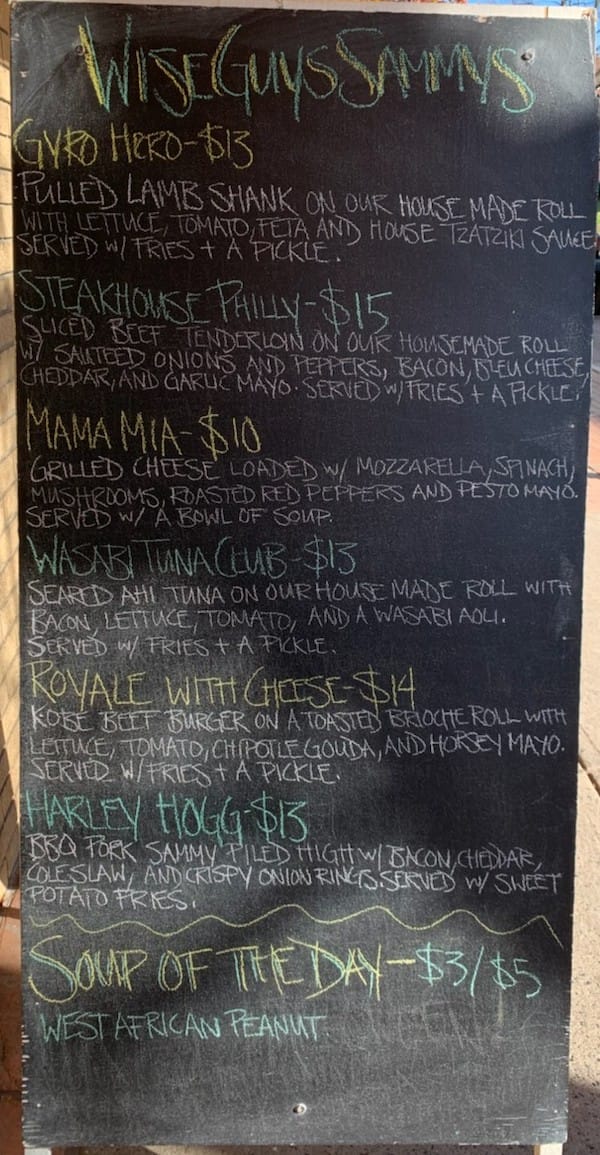 WISEGUYS SAMMYS
GYRO HERO-$13
PULLED LAMB SHANK ON OUR HOUSE MADE ROLL
WITH LETTUCE, TOMATO, FETA AND HOUSE TZATZIKI SAUCE
SERVED W/ FRIES + A PICKLE.
STEAKHOUSE PHILLY-$15
SLICED BEEF TENDERLOIN ON OUR HOUSEMADE ROLL
W/ SAUTEED ONIONS AND PEPPERS, BACON, BLEU CHEESE,
CHEDDAR, AND GARLIC MAYO. SERVED W/ FRIES + A PICKLE.
MAMA MIA-$10
GRILLED CHEESE LOADED W/ MOZZARELLA, SPINACH,
MUSHROOMS, ROASTED RED PEPPERS AND PESTO MAYO.
SERVED W/ A BOWL OF SOUP.
WASABI TUNA CLUB-$13
SEARED AHI TUNA ON OUR HOUSE MADE ROLL WITH
BACON, LETTUCE, TOMATO, AND A WASABI AOLI.
SERVED W/ FRIES + A PICKLE.
ROYALE WITH CHEESE-$14
KOBE BEEF BURGER ON A TOASTED BRIOCHE ROLL WITH
LETTUCE, TOMATO, CHIPOTLE GOUDA, AND HORSEY MAYO.
SERVED W/ FRIES + A PICKLE.
HARLEY HOGG-$13
BBQ PORK SAMMY PILED HIGH W/ BACON, CHEDDAR,
COLESLAW, AND CRISPY ONION RINGS. SERVED W/ SWEET
POTATO FRIES.
SOUP OF THE DAY-$3/$5
WEST AFRICAN PEANUT